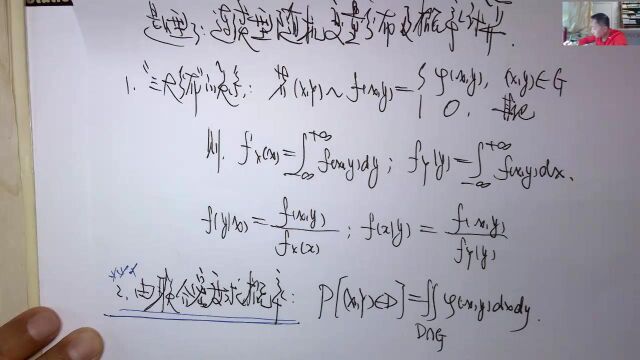 题型3:连续型随机变量分布及概率计算.
1."三大分布"的定义: 若(X,Y)~f(x,y)={φ(x,y), (x,y)∈G
0, 其他
则. f_X(x)=∫_{-∞}^{+∞}f(x,y)dy; f_Y(y)=∫_{-∞}^{+∞}f(x,y)dx.
f(y|x)=f(x,y)/f_X(x); f(x|y)=f(x,y)/f_Y(y)
2.由联合密度求概率: P[(X,Y)∈D]=∬_{D∩G}φ(x,y)dxdy.